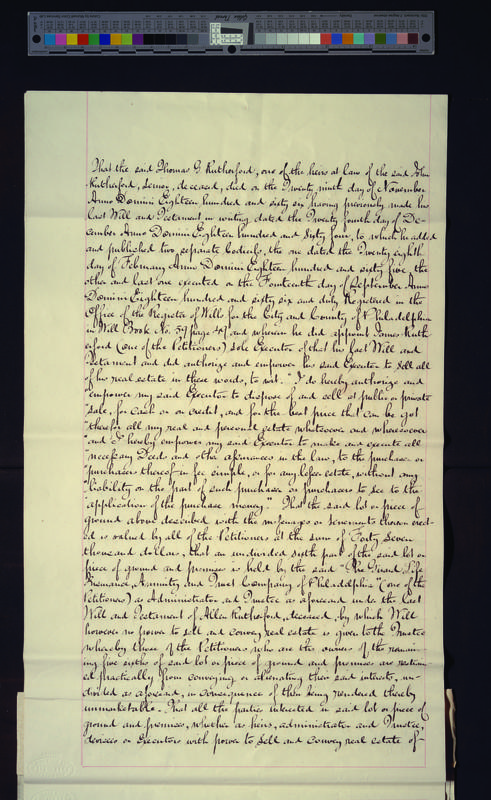 That the said Thomas G Rutherford, one of the heirs at law of the said John
Rutherford, Senior, deceased, died on the Twenty ninth day of November
Anno Domini Eighteen hundred and sixty six having previously made his
last Will and Testament in writing dated the Twenty fourth day of De-
cember Anno Domini Eighteen hundred and Sixty four, to which he added
and published two separate Codicils, the one dated the Twenty eighth
day of February Anno Domini Eighteen hundred and sixty five the
other and last one executed on the Fourteenth day of September Anno
Domini Eighteen hundred and sixty six and duly Registered in the
Office of the Register of Wills for the City and County of Philadelphia
in Will Book No. 57 page 47 and wherein he did appoint James Ruth-
erford (one of the Petitioners) sole Executor of that his last Will and
Testament and did authorize and empower his said Executor to sell all
of his real estate in these words, to wit. "I do hereby authorize and
"empower my said Executor to dispose of and sell at public or private
"sale, for cash or on credit, and for the best price that can be got
"therefor all my real and personal estate whatsoever and wheresoever
"and I hereby empower my said Executor to make and execute all
"necessary Deeds and other assurances in the law, to the purchaser or
"purchasers thereof in fee simple, or for any lesser estate, without any
"liability on the part of such purchaser or purchasers to see to the
"application of the purchase money." That the said lot or piece of
ground above described with the messuages or tenements thereon erect-
ed is valued by all of the Petitioners at the sum of Forty Seven
thousand dollars, that an undivided sixth part of the said lot or
piece of ground and premises is held by the said "The Girard Life
Insurance, Annuity and Trust Company of Philadelphia" (one of the
Petitioners) as Administrator and Trustee as aforesaid under the last
Will and Testament of Allen Rutherford, deceased, by which Will
however no power to sell and convey real estate is given to the Trustee
whereby those of the Petitioners who are the owners of the remain-
ing five sixths of said lot or piece of ground and premises are restrain-
ed practically from conveying or alienating their said interests, un-
divided as aforesaid, in consequence of their being rendered thereby
unmarketable. That all the parties interested in said lot or piece of
ground and premises, whether as heirs, administrator and Trustee,
devisees or Executors with power to sell and convey real estate of